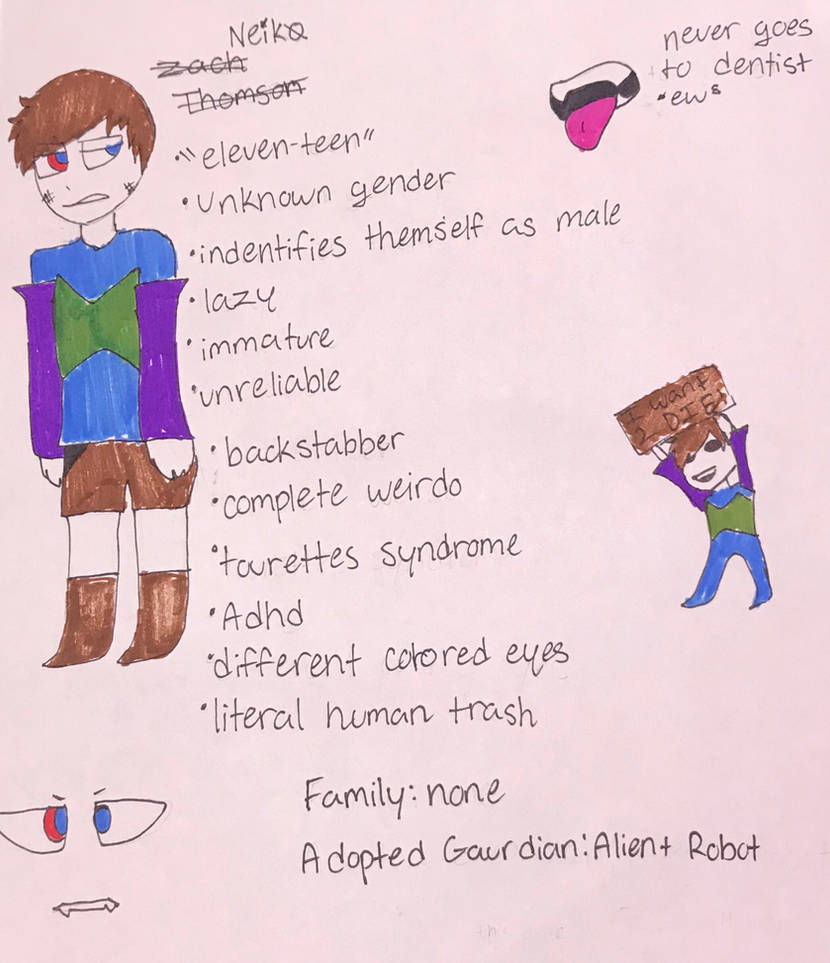 Neiko
Zach
Thomson
never goes
to dentist
*ew*
•"eleven-teen"
•Unknown gender
•indentifies themself as male
•lazy
•immature
•unreliable
•backstabber
•complete weirdo
•tourettes syndrome
•Adhd
•different colored eyes
•literal human trash
I want
2 DIE!
Family: none
Adopted Gaurdian: Alient Robot